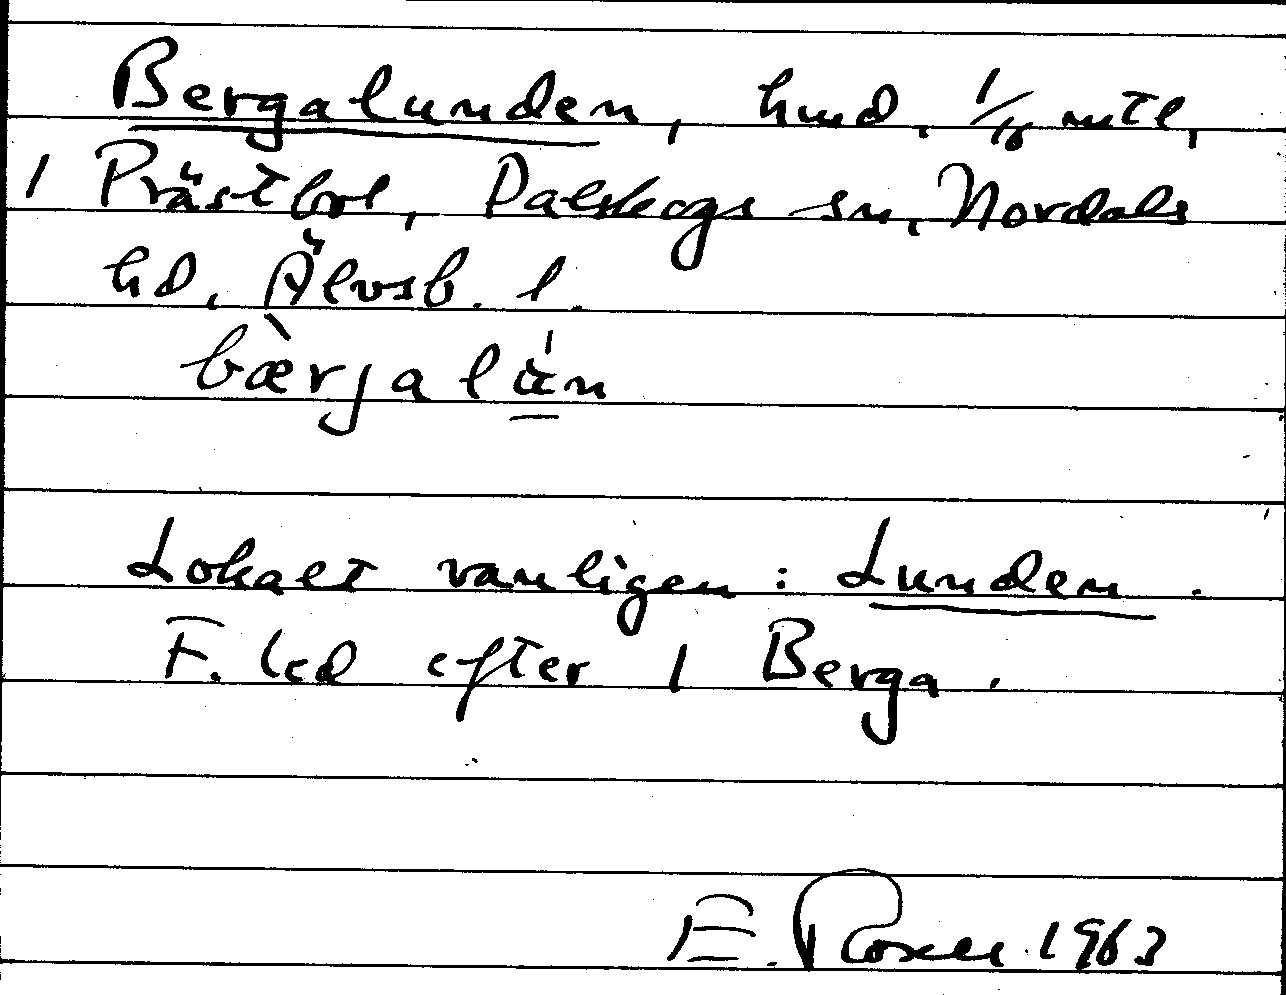 Bergalunden, hmd. 1/16 mtl,
1 Prästbol, Dalskogs sn, Nordals
hd, Älvsb. l.
bærjalu̲n
Lokalt vanligen: Lunden.
F. led efter 1 Berga.
E. Rosell 1963